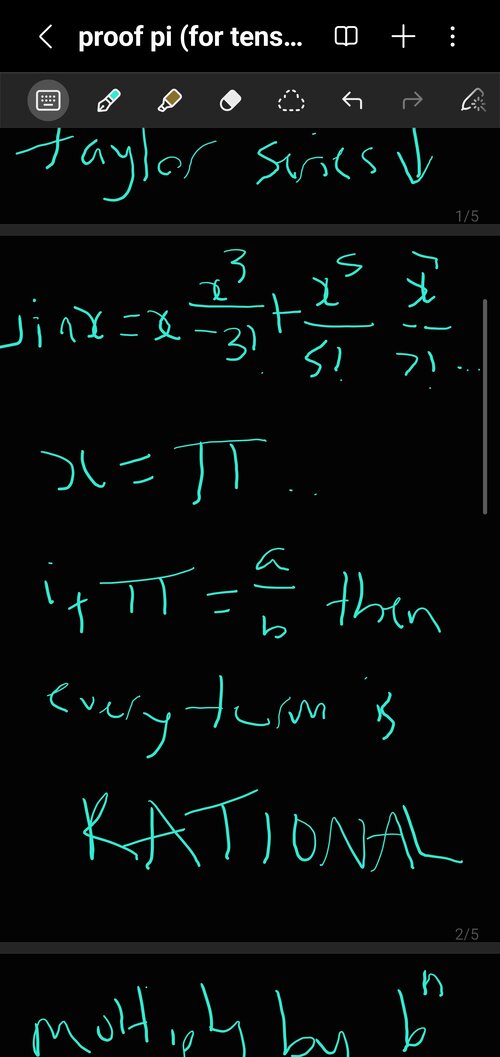 proof pi (for tens...
taylor series ↓
1/5
sinx = x x³/-3! + x⁵/5! x⁷/7! ...
x = π ..
if π = a/b then
every term is
RATIONAL
2/5
multiply by bⁿ